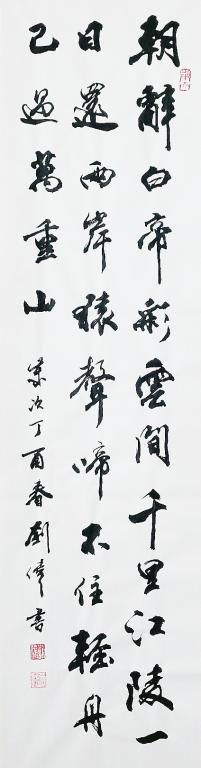 朝辭白帝彩雲間千里江陵一
日還两岸猿聲啼不住輕舟
已過萬重山
歲次丁酉春劉偉書